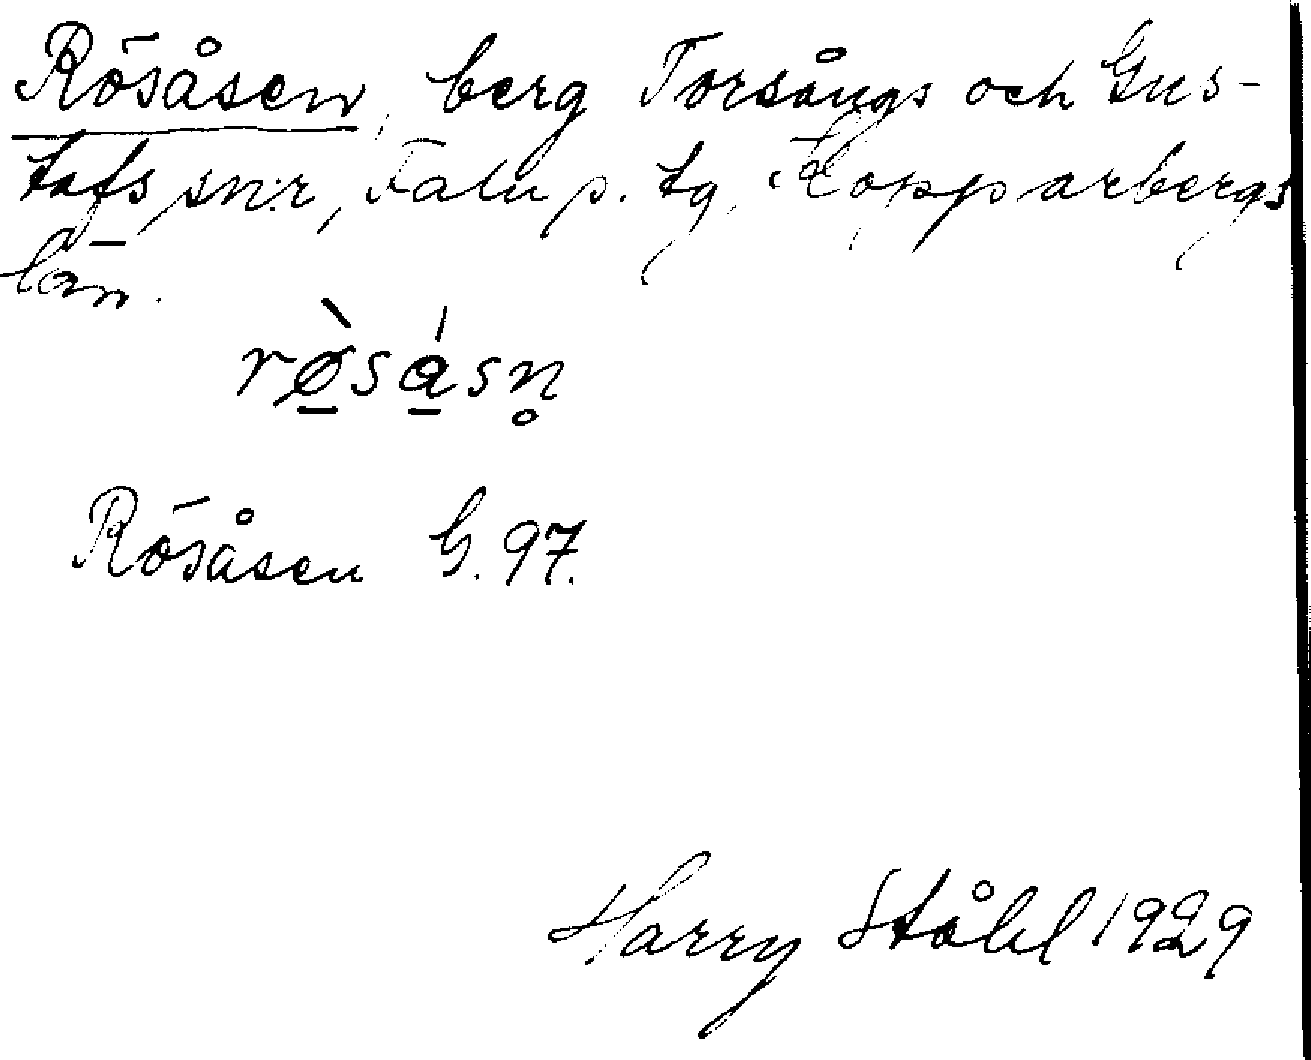 Rösåsen, berg Torsångs och Gus-
tafs sn:r, Falu p. tg, Kopparbergs
län.
rø̱̀sá̱sn̥
Rösåsen G. 97.
Harry Ståhl 1929